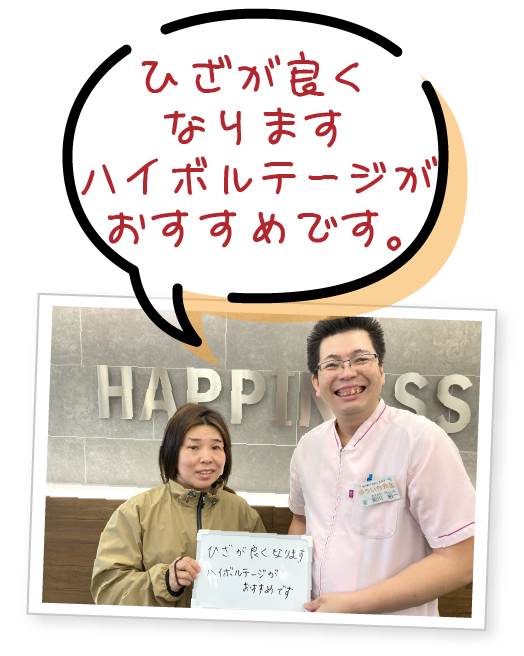 ひざが良く
なります
ハイボルテージが
おすすめです。
HAPPINESS
ゆういち先生
ひざが良くなります
ハイボルテージが
おすすめです